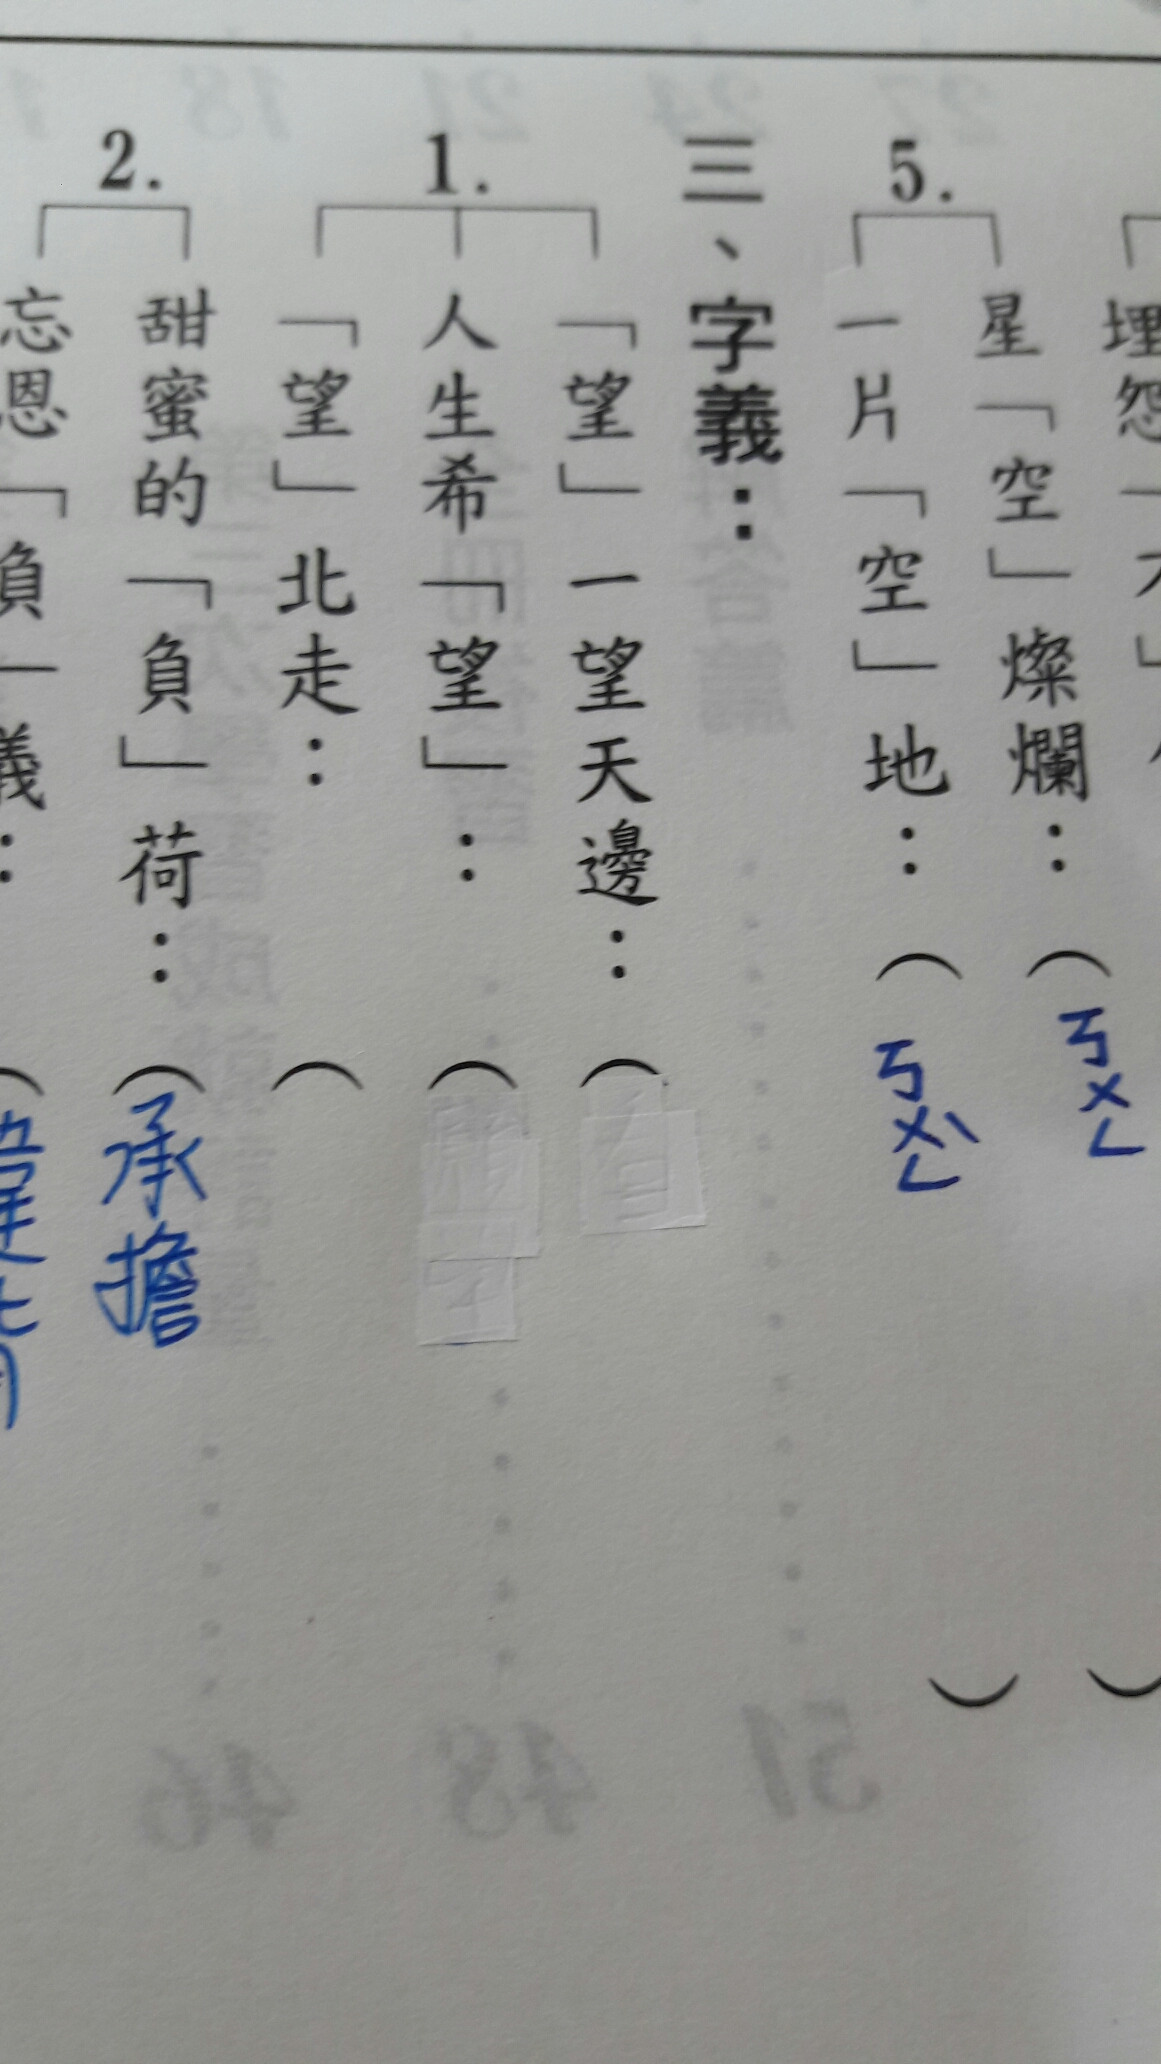 星「空」燦爛：（ㄎㄨㄥ）
5. 一片「空」地：（ㄎㄨㄥˋ）
三、字義：
1. 「望」一望天邊：（
人生希「望」：（
「望」北走：（
2. 甜蜜的「負」荷：（承擔
忘恩「負」義：（違背